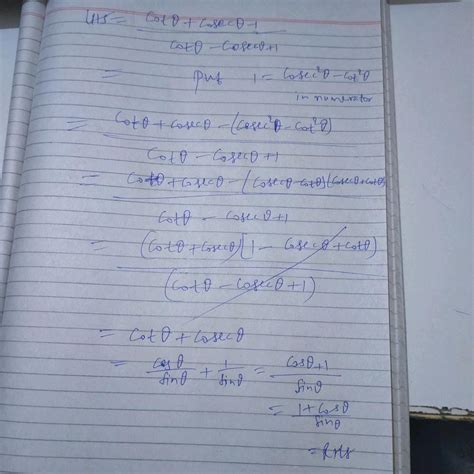 LHS = cotθ + cosecθ - 1
cotθ - cosecθ + 1
= put 1 = cosec²θ - cot²θ
in numerator
= cotθ + cosecθ - (cosec²θ - cot²θ)
cotθ - cosecθ + 1
= cotθ + cosecθ - (cosecθ - cotθ)(cosecθ + cotθ)
cotθ - cosecθ + 1
= (cotθ + cosecθ)[1 - cosecθ + cotθ)
(cotθ - cosecθ + 1)
= cotθ + cosecθ
= cosθ/sinθ + 1/sinθ = cosθ + 1/sinθ
= 1 + cosθ/sinθ
= RHS